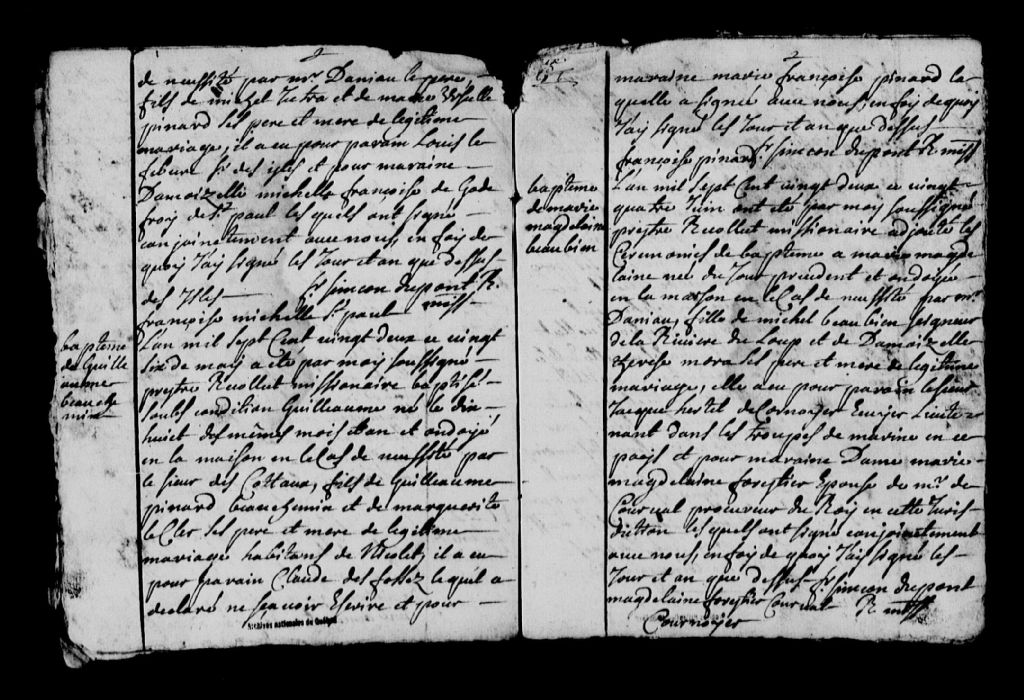 2
de necessité par mr. Daniau le pere,
fils de michel Jutra et de marie Ursulle
pinard ses pere et mere de legitime
mariage, il a eu pour parain Louis le
febure sr. des isles et pour maraine
Damoizelle michelle françoise de Gode
froy de St. paul les quels ont signé
conjoinctement avec nous, en foy de
quoy J'ay signé les Jour et an que dessus
des Isles fr. simeon dupont R.
françoise michelle St. paul miss
bapteme
de Guille
aumer
beauche
min
L'an mil sept Cent vingt deux ce vingt
six de may a eté par moy soussigné
prestre Recollect missionaire baptisé
soubs condition Guilleaume né le dix
huict des mêmes mois et an et ondoyé
en la maison en le Cas de necessité par
le sieur des Cottaux, fils de Guilleaume
pinard beauchemin et de marguerite
le Cler ses pere et mere de legitime
mariage habitans de Nicolet, il a eu
pour parain Claude des fossez lequel a
declaré ne sçavoir Escrire et pour
Archives nationales du Québec
2
maraine marie françoise pinard la
quelle a signé avec nous, en foy de quoy
J'ay signé les Jour et an que dessus
françoise pinard fr. simeon dupont R. miss
bapteme
de marie
magdelaine
beaubien
L'an mil sept Cent vingt deux ce vingt
quatre Juin ont eté par moy soussigné
prestre Recollect missionaire adjouté les
Ceremonies de bapteme a marie magde
laine nee du Jour precedent et ondoyée
en la maison en le Cas de necessité par mr.
Daniau, fille de michel beaubien seigneur
de la Riviere du Loup et de Damoizelle
therese mora ses pere et mere de legitime
mariage, elle a eu pour parain le sieur
Jacque hertel de Cornoyer Ecuyer Lieute
nant dans les trouppes de marine en ce
pays et pour maraine Dame marie
magdelaine forestier Epouse de mr. de
Courval procureur du Roy en cette Juris
diction les quels ont signé conjointement
avec nous, en foy de quoy J'ay signé les
Jour et an que dessus fr. simeon dupont
magdelaine forestier Courval R. miss
Cournoyer